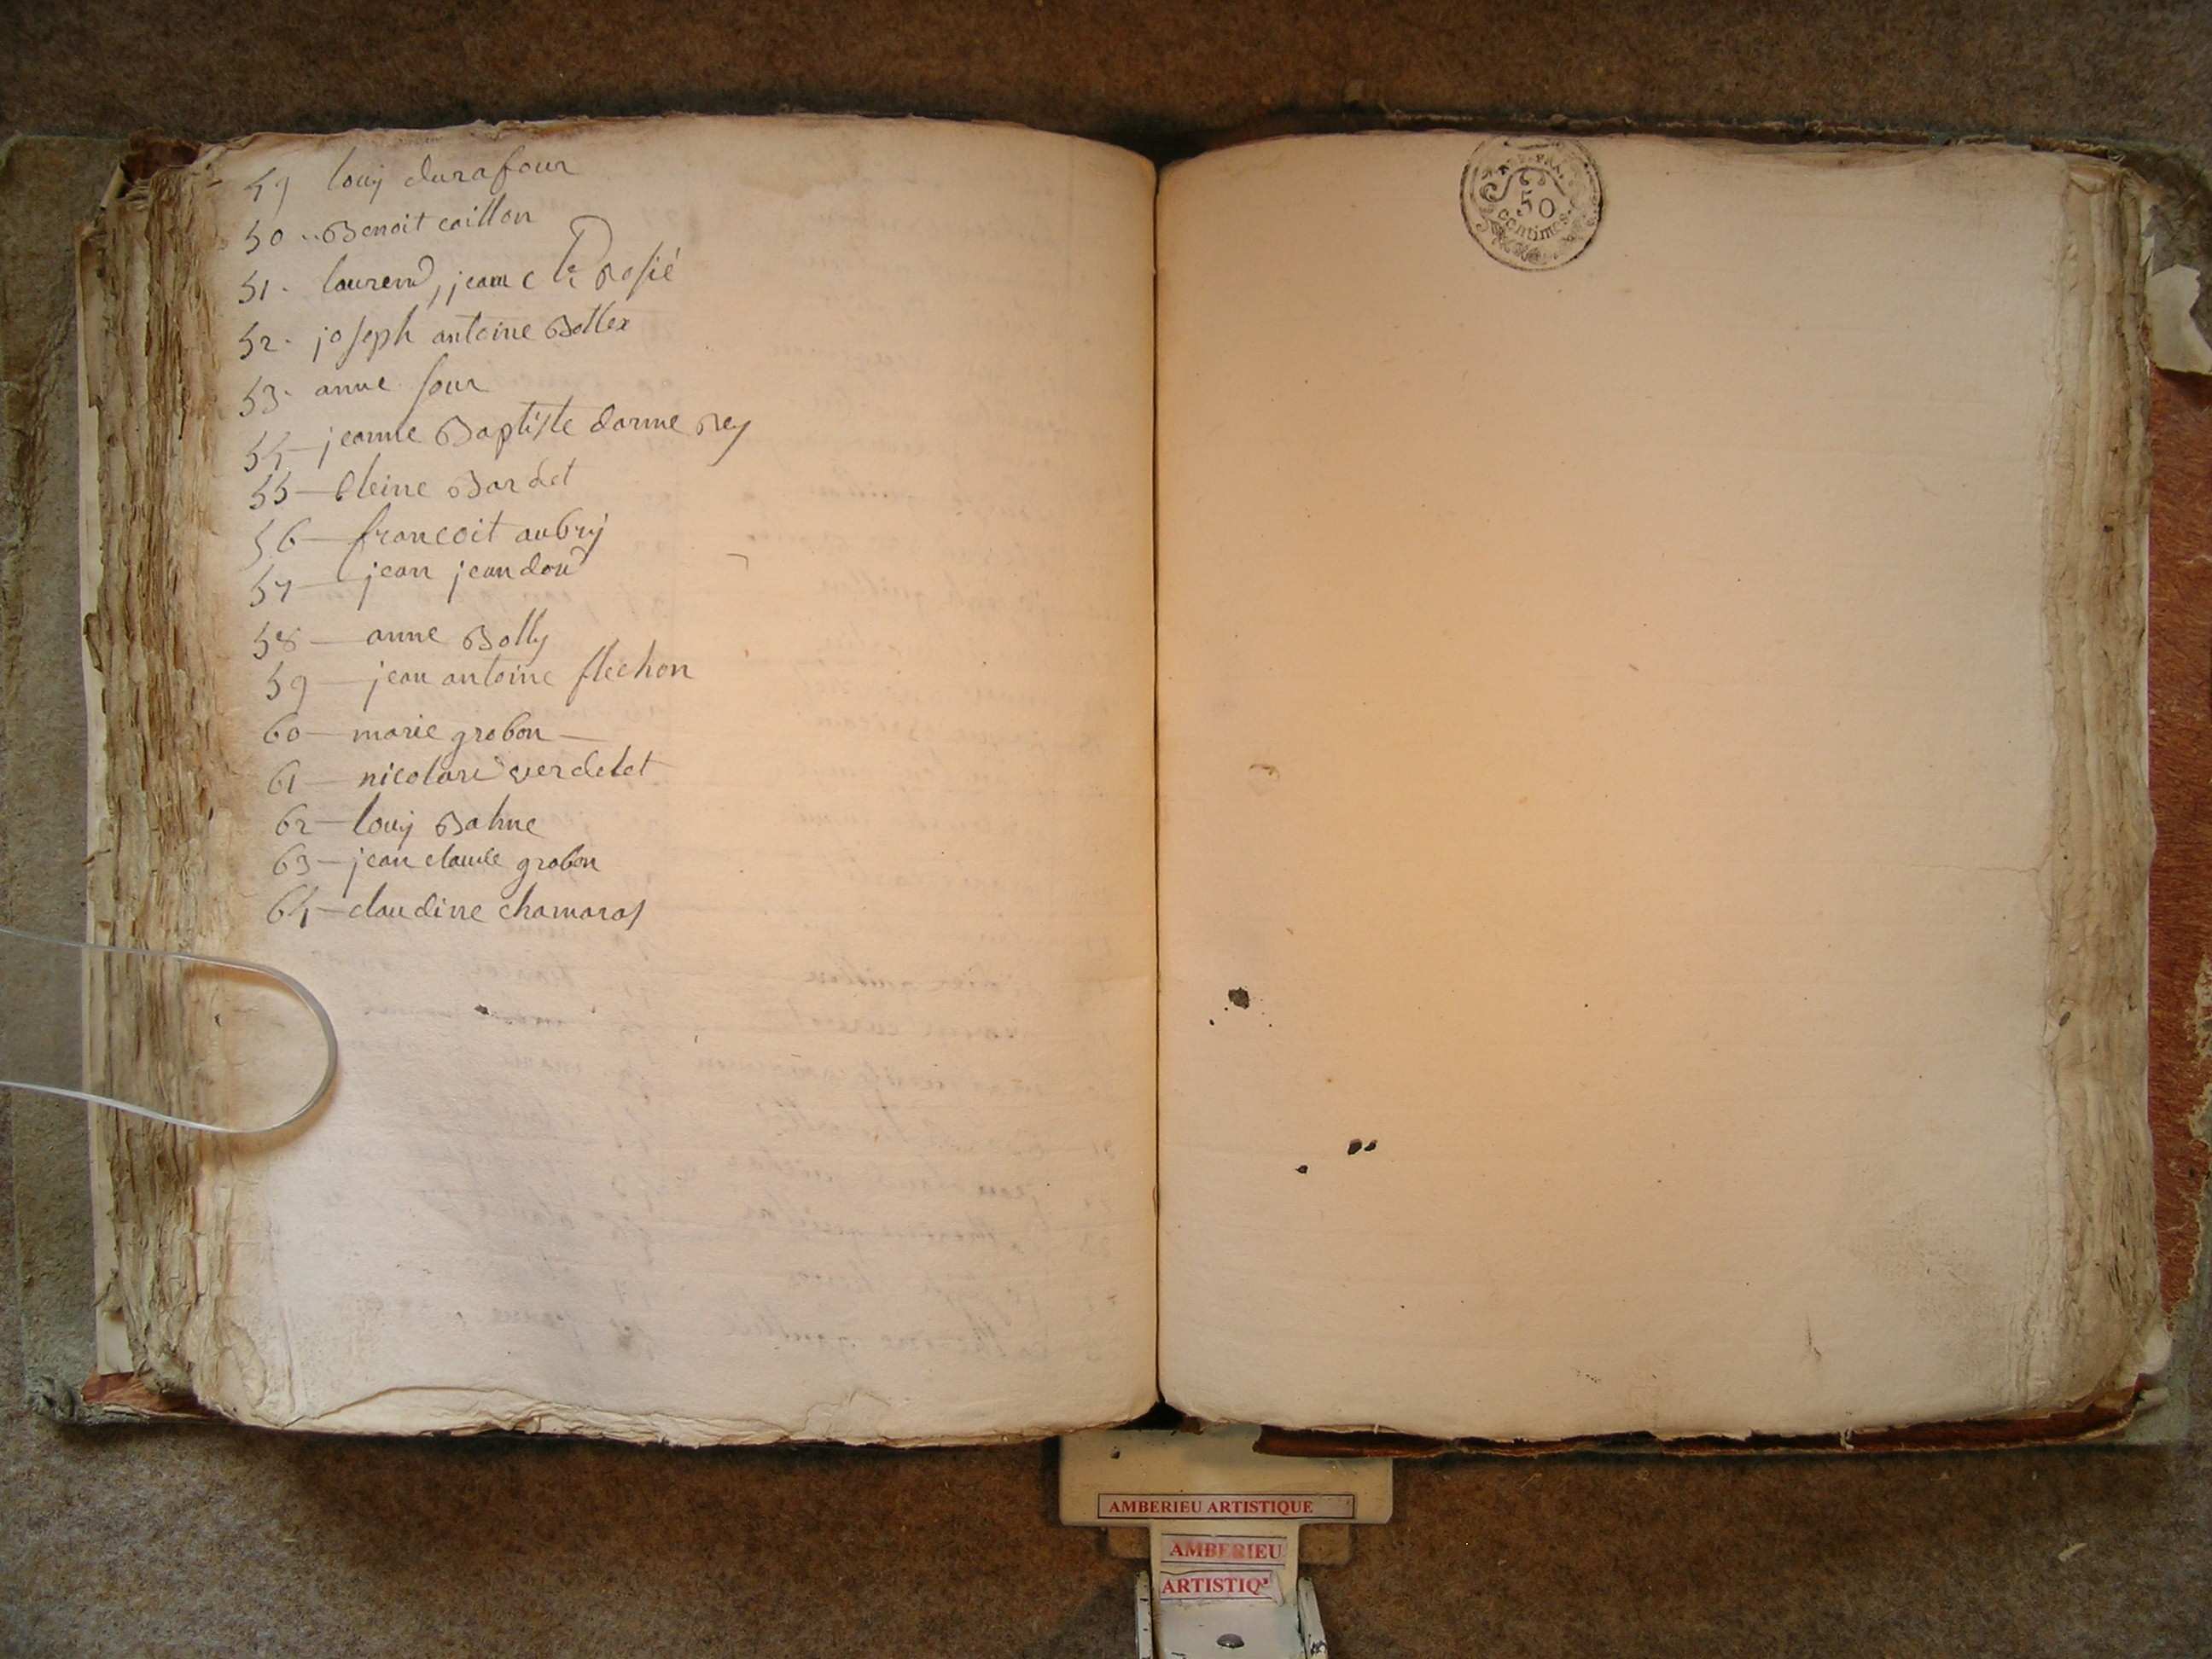 49 louij durafour
50 .. Benoit caillon
51. laurend, jean c le Rosié
52. joseph antoine Bottex
53. anne four
54 — jeanne Baptiste danne Rey
55 — Cleine Bardet
56 — francoit aubrij
57 — jean jeandou
58 — anne Bolly
59 — jean antoine flechon
60 — marie grobon —
61 — nicolare verdelet
62 — louij Bahne
63 — jean claude grobon
64 — claudine chamaras
REP. FRA.
50
centimes.
AMBERIEU ARTISTIQUE
AMBERIEU
ARTISTIQ